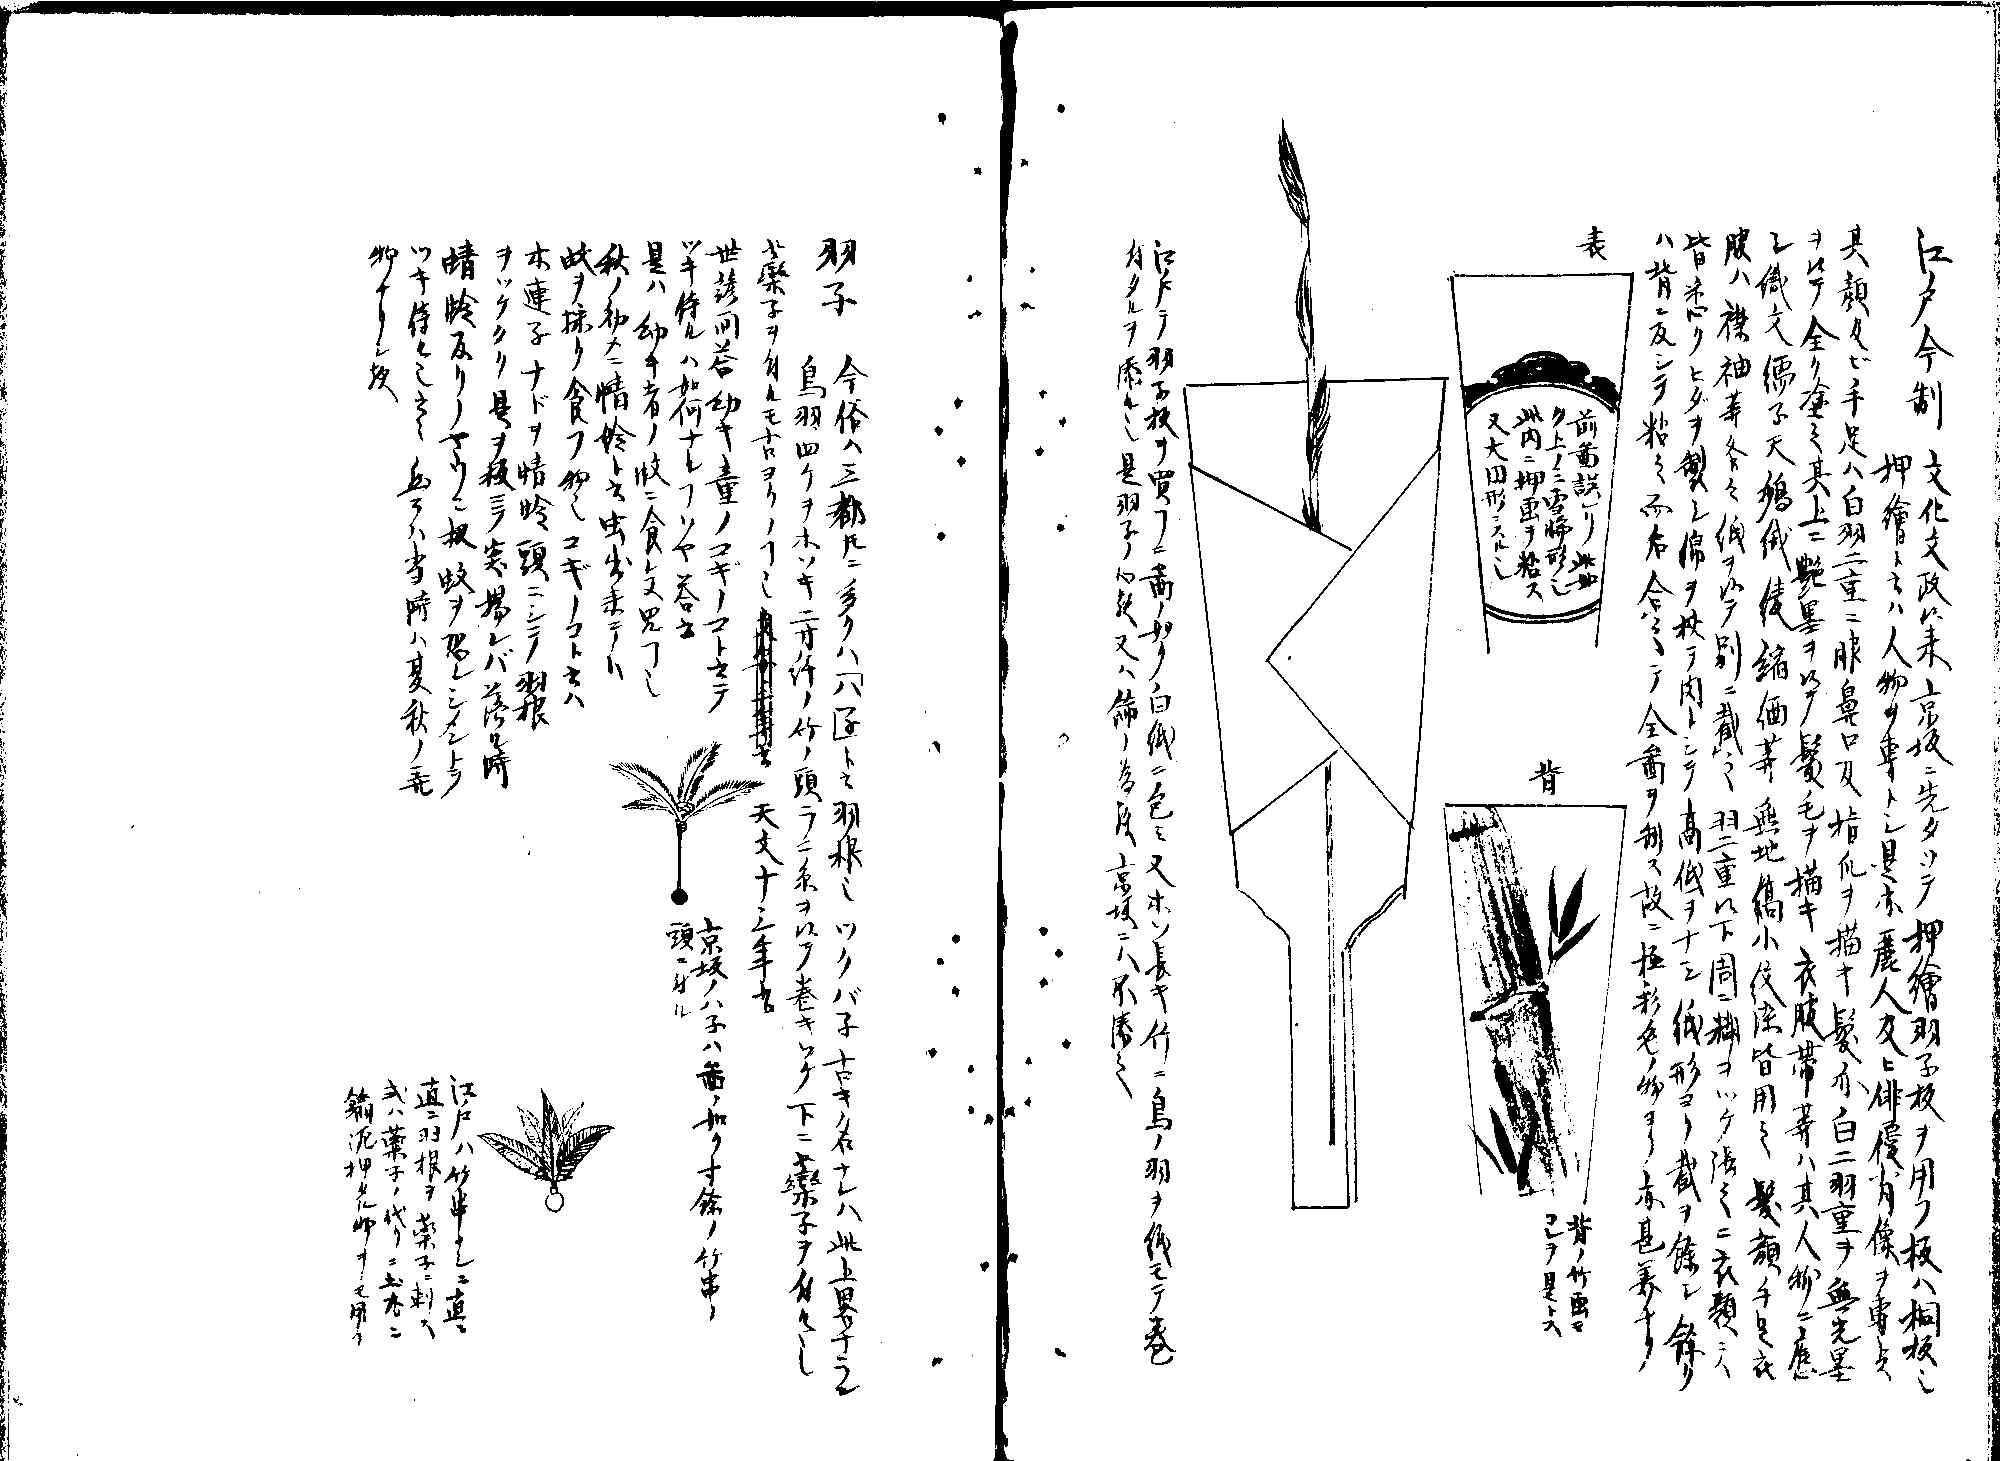 江戸今制　文化文政以来京坂ニ先タツテ押繪羽子板ヲ用フ板ハ桐板也
押繪ト云ハ人物ヲ專トシ是亦麗人及ヒ俳優肖像ヲ專トス
其顔及ビ手足ハ白羽二重ニ眼鼻口及指爪ヲ描キ髪亦白二羽重ヲ無光墨
ヲ以テ全ク塗之其上ニ艶墨ヲ以テ鬢毛ヲ描キ衣服帯等ハ其人物ニ應
シ織文繻子天鵝絨綾縮緬等無地縞小紋染皆用之髪顔手足衣
服ハ襟袖等各々紙ヲ以テ別ニ裁之羽二重以下周ニ糊ヲツケ張之ニ衣類ニハ
皆悉クヒダヲ製シ綿ヲ挾テ肉トシテ高低ヲナシ紙形ヨリ裁ヲ餘シ餘リ
ハ背ニ反シテ粘之而后合之テ全畫ヲ製ス故ニ極彩色ノ物ヨリ亦甚美ナリ
表
前畫誤レリ此如
ク上ノミ雪輪形也
此内ニ押画ヲ粘ス
又大円形ニスル也
背
背ノ竹画モ
コヲ是トス
江戸ニテ羽子板ヲ買フニ畫ノ如ク白紙ニ包ミ又ホソ長キ竹ニ鳥ノ羽ヲ紙モテ巻
付タルヲ添ル也是羽子ノ心歟又ハ飾ノ為歟京坂ニハ不添之
羽子　今俗ハ三都トモニ多クハ「ハゴ」ト云羽根也ツクバ子古キ名ナレハ此上畧ナラン
鳥羽四ケヲホソキ二寸許ノ竹ノ頭ラニ糸ヲ以テ巻キツケ下ニ木欒子ヲ付ル也
木欒子ヲ付ルモ古ヨリノコト也　天文十三年書
世諺問答幼キ童ノコギノコト云テ
ツキ侍ルハ如何ナルコソヤ答云
是ハ幼キ者ノ蚊ニ食レヌ咒コト也
秋ノ初メニ蜻蛉ト云虫出来テハ
蚊ヲ採リ食フ物也コギノコト云ハ
木連子ナドヲ蜻蛉頭ニシテ羽根
ヲツケタリ是ヲ板ニテ突揚レバ落ル時
蜻蛉反リノヤウニ板蚊ヲ恐レシメントテ
ツキ侍ル也云々　然ラハ当時ハ夏秋ノ翫
物ナリシ歟
京坂ノハ子ハ畫ノ如ク寸餘ノ竹串ノ
頭ニ付ル
江戸ハ竹串ナシニ直ニ
直ニ羽根ヲ欒子ニ刺ス
或ハ欒子ノ代リニ土丸ニ
鍮泥押タル物ヲモ用フ